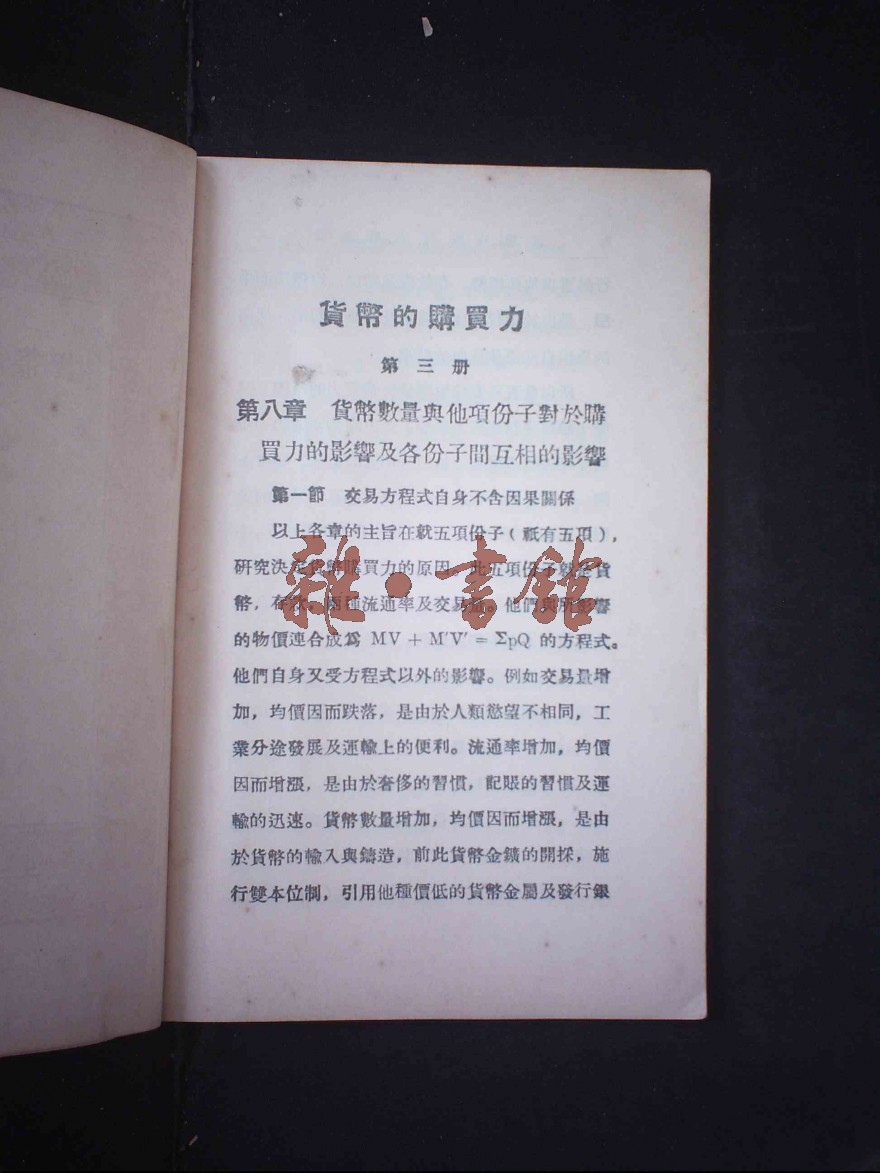 貨幣的購買力
第三册
第八章 貨幣數量與他項份子對於購
買力的影響及各份子間互相的影響
第一節 交易方程式自身不含因果關係
以上各章的主旨在就五項份子（祇有五項），
研究決定貨幣購買力的原因。此五項份子就是貨
幣，存款，兩種流通率及交易量。他們與所影響
的物價連合成爲 MV + M′V′ = ΣpQ 的方程式。
他們自身又受方程式以外的影響。例如交易量增
加，均價因而跌落，是由於人類慾望不相同，工
業分途發展及運輸上的便利。流通率增加，均價
因而增漲，是由於奢侈的習慣，記賬的習慣及運
輸的迅速。貨幣數量增加，均價因而增漲，是由
於貨幣的輸入與鑄造，前此貨幣金鑛的開採，施
行雙本位制，引用他種價低的貨幣金屬及發行銀
雜·書館